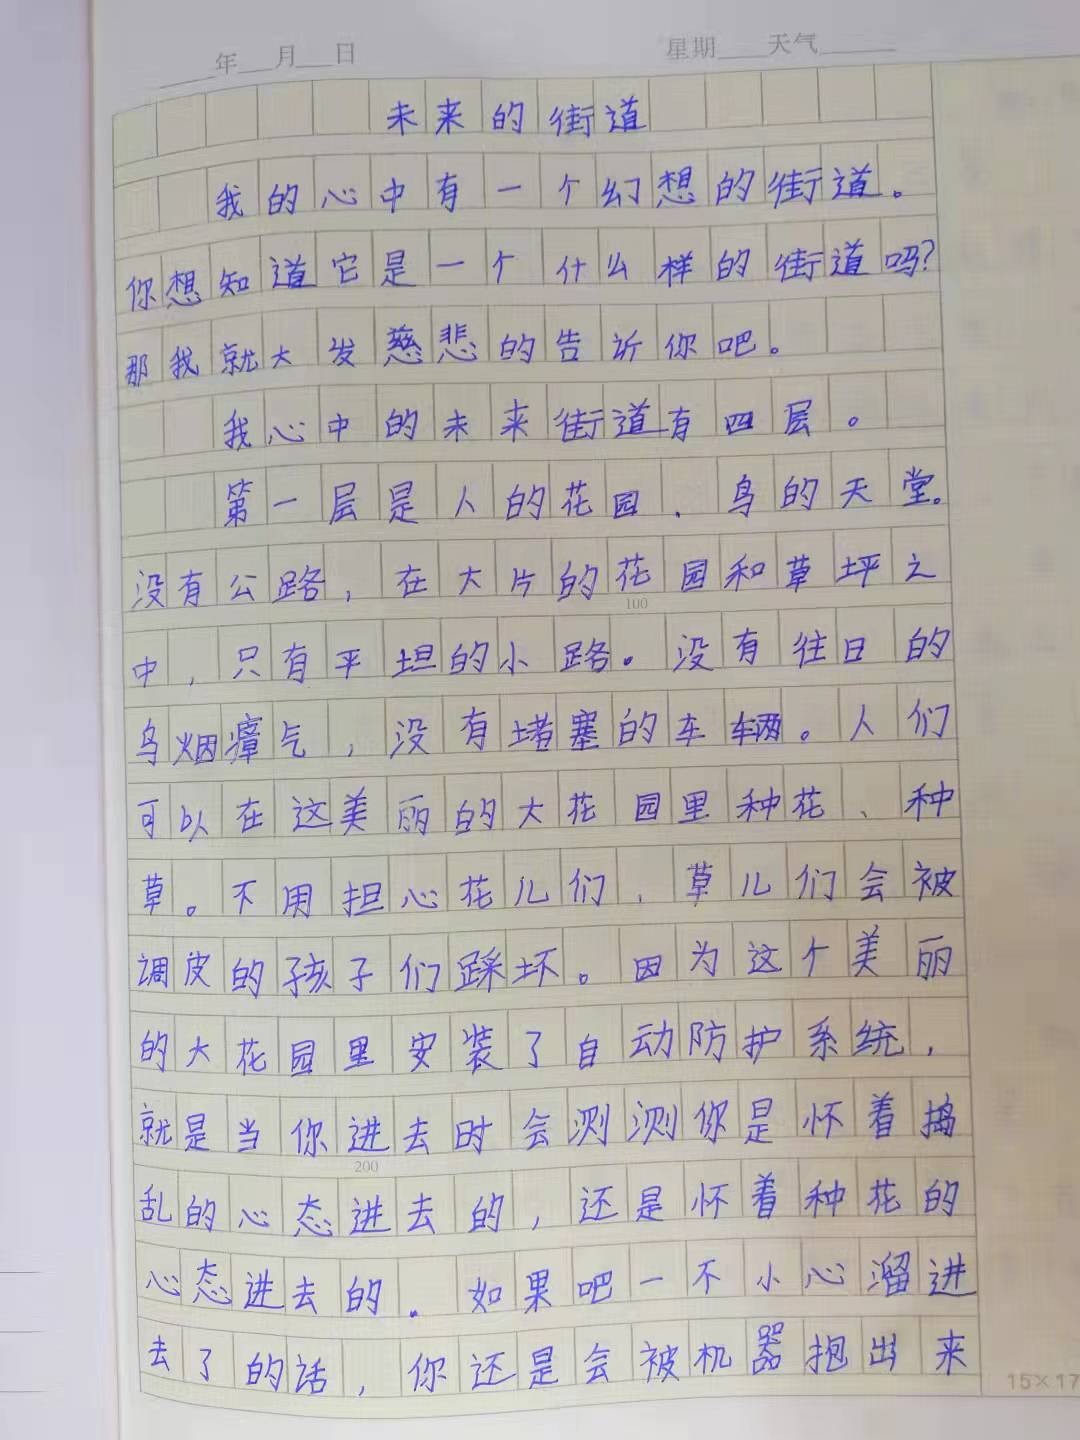 年 月 日 星期 天气
未来的街道
我的心中有一个幻想的街道。
你想知道它是一个什么样的街道吗?
那我就大发慈悲的告诉你吧。
我心中的未来街道有四层。
第一层是人的花园、鸟的天堂。
没有公路,在大片的花园和草坪之
100
中,只有平坦的小路。没有往日的
乌烟瘴气,没有堵塞的车辆。人们
可以在这美丽的大花园里种花、种
草。不用担心花儿们、草儿们会被
调皮的孩子们踩坏。因为这个美丽
的大花园里安装了自动防护系统,
就是当你进去时会测测你是怀着捣
200
乱的心态进去的,还是怀着种花的
心态进去的.如果吧一不小心溜进
去了的话,你还是会被机器抱出来
15×17